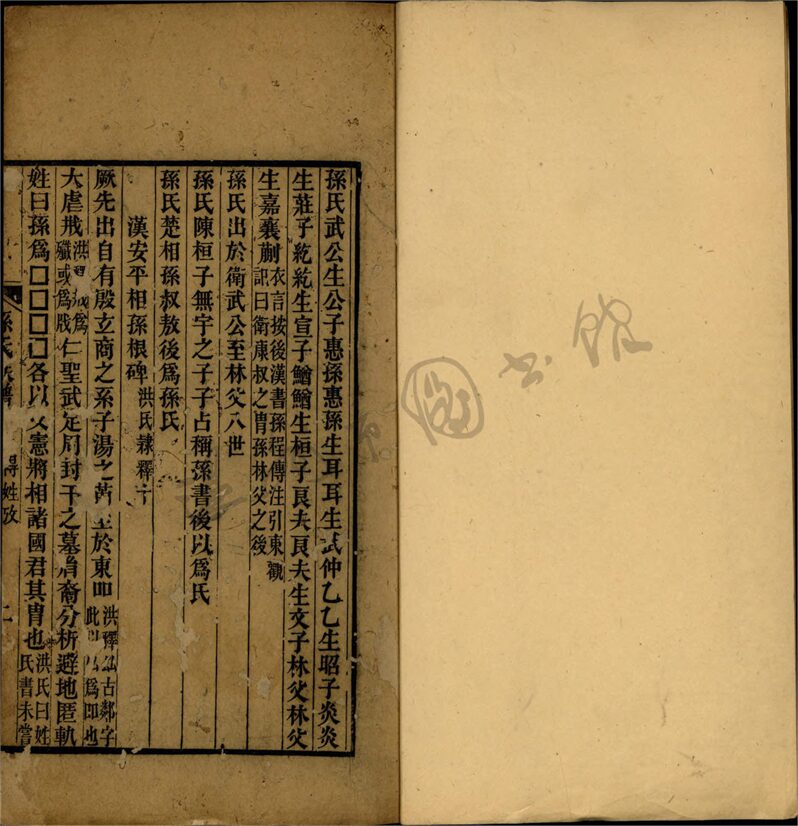 孫氏武公生公子惠孫惠孫生耳耳生武仲乙乙生昭子炎炎
生莊子紇紇生宣子鰌鰌生桓子良夫良夫生文子林父林父
生嘉襄蒯衣言按後漢書孫程傳注引東觀
記曰衛康叔之胄孫林父之後
孫氏出於衛武公至林父八世
孫氏陳桓子無宇之子子占稱孫書後以爲氏
孫氏楚相孫叔敖後爲孫氏
漢安平相孫根碑洪氏隸釋十
厥先出自有殷立商之系子湯之苗至於東㕁洪釋㕁古鄰字
此爲卽也
大虐戕洪爲
殲或爲戕仁聖武定周封干之墓胤裔分析避地匿軌
姓曰孫爲囗囗囗囗各以文憲將相諸國君其胄也洪氏曰姓
氏書未嘗
孫氏族譜
得姓攷
二
書館